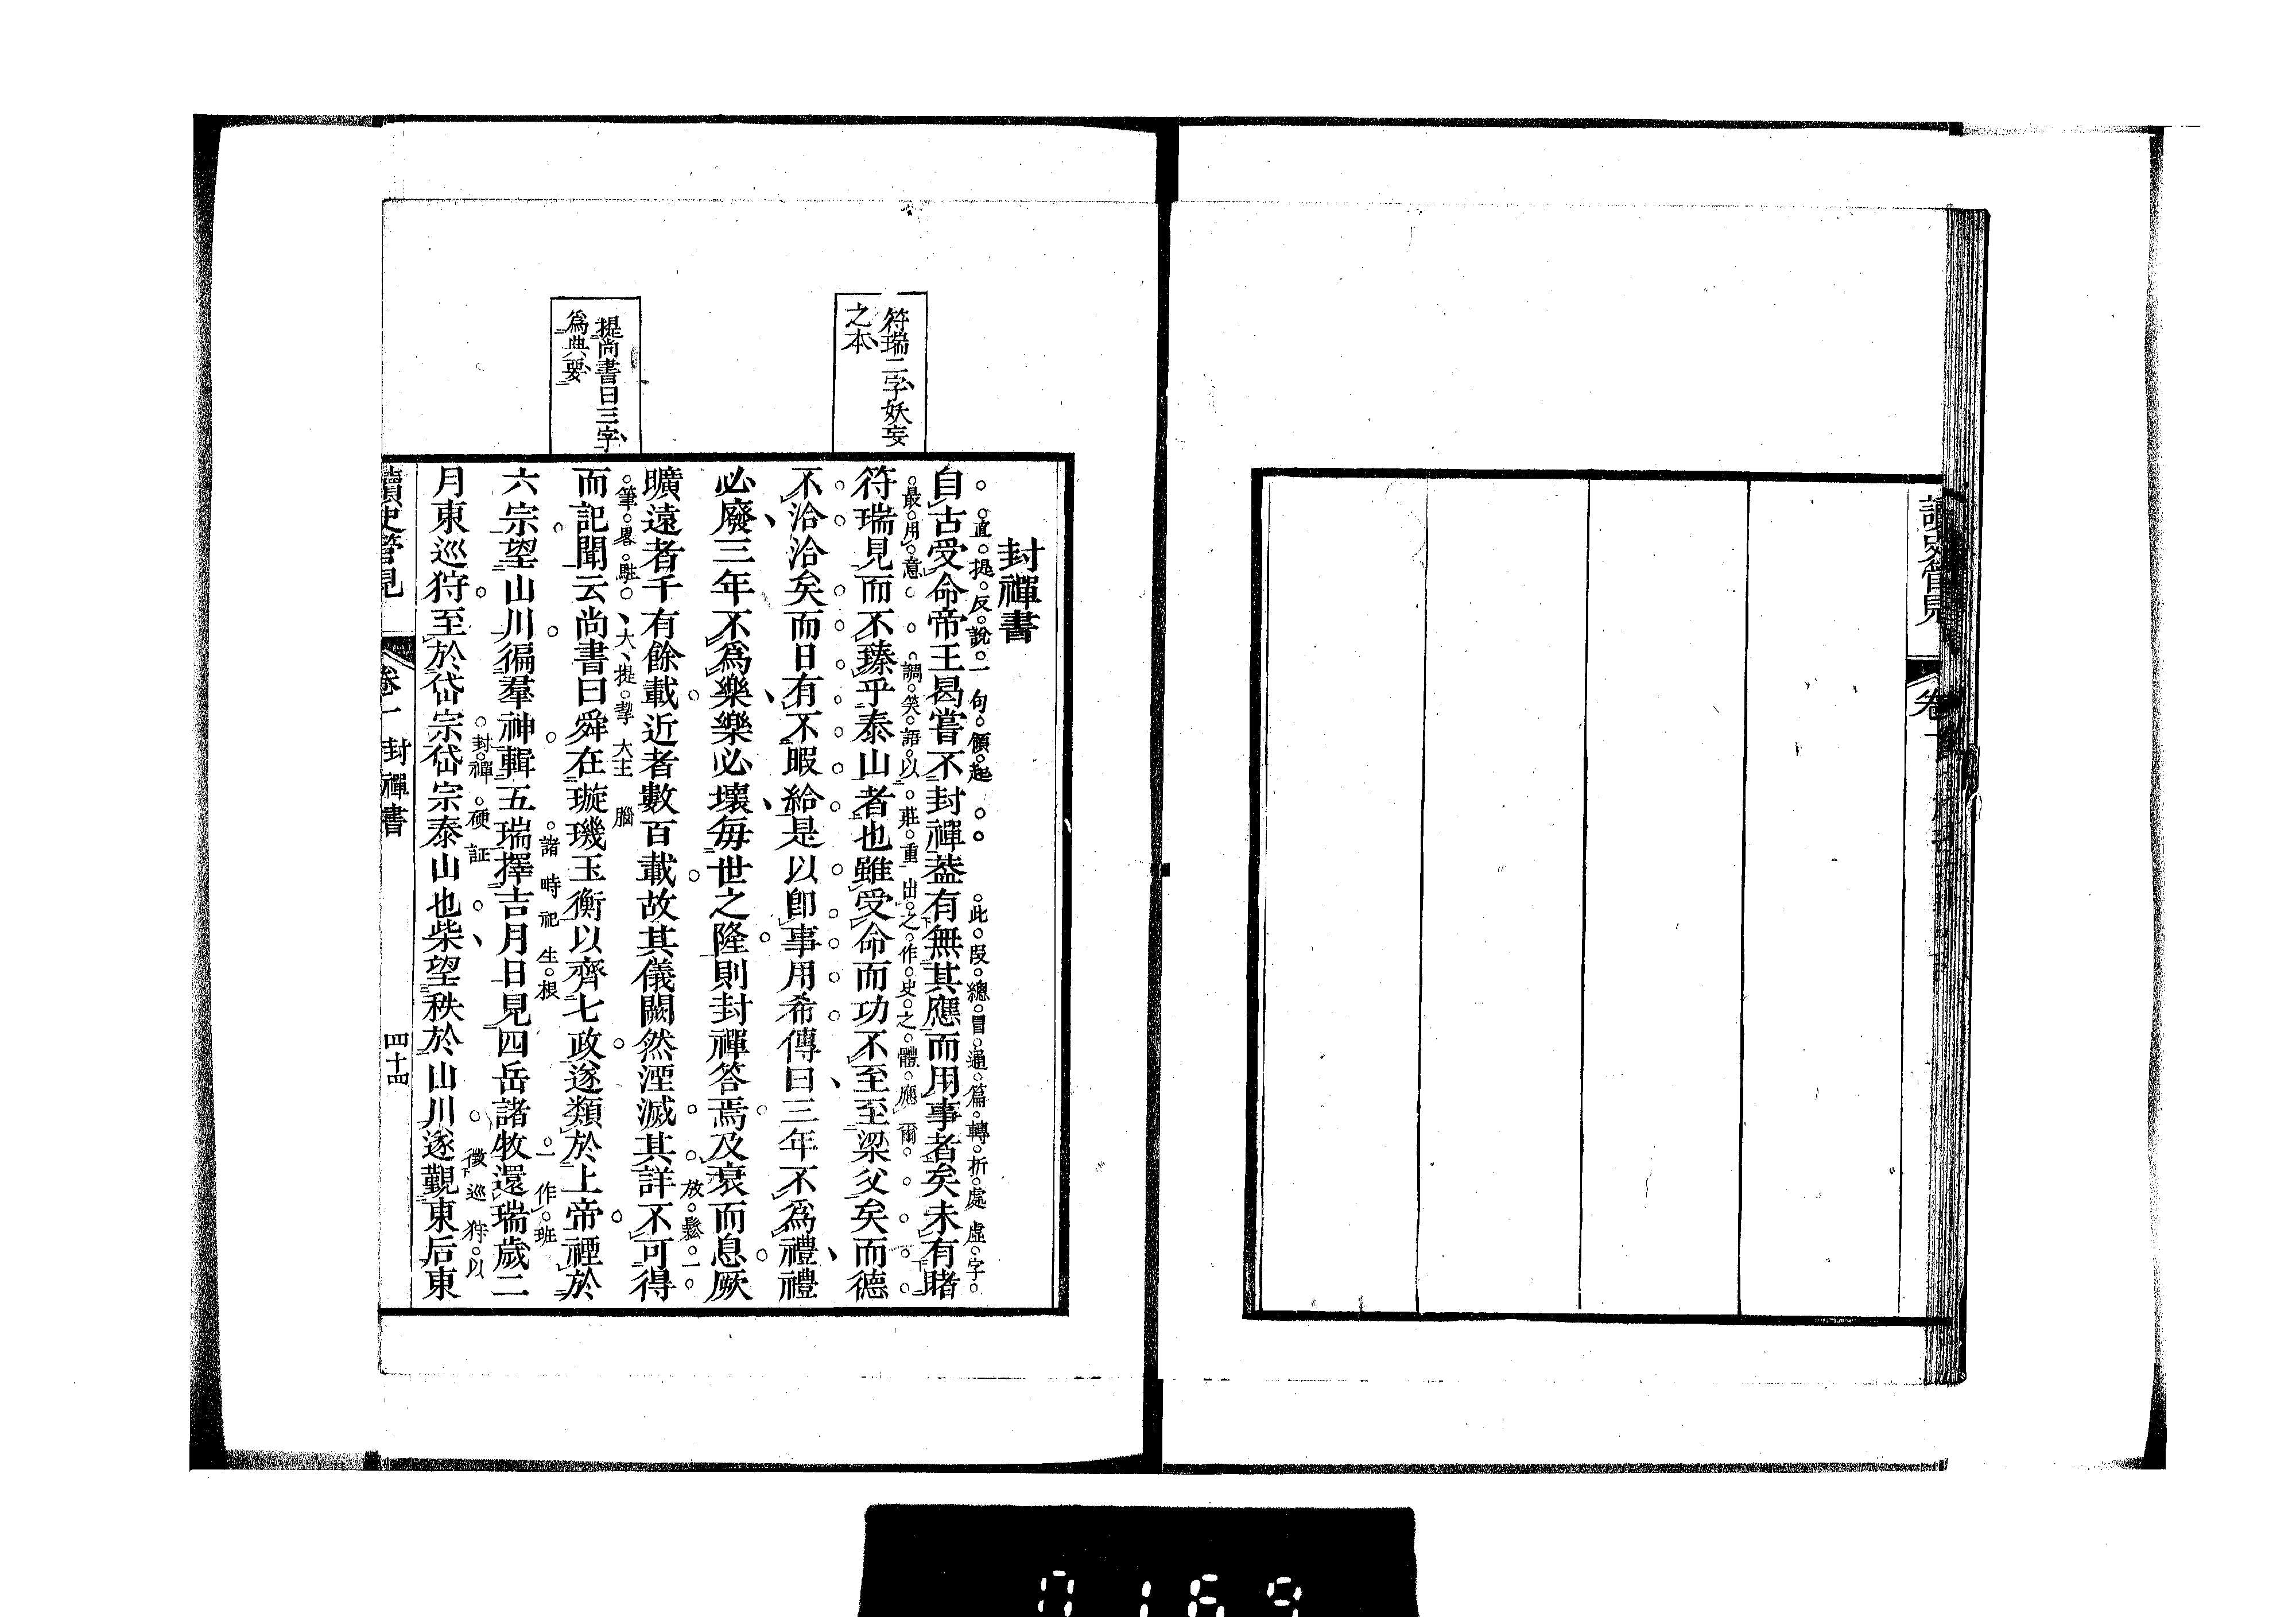 讀史管見
卷一
符瑞二字妖妄
之本
提尚書曰三字
為典要
封禪書
直提反說一句領起
此段總冒通篇轉折處虛字
自古受命帝王曷嘗不封禪葢有無其應而用事者矣未有睹
最用意
調笑語以莊重出之作史之體應爾
符瑞見而不臻乎泰山者也雖受命而功不至至梁父矣而德
不洽洽矣而日有不暇給是以卽事用希傳曰三年不爲禮禮
必廢三年不爲樂樂必壞每世之隆則封禪答焉及衰而息厥
放鬆一
曠遠者千有餘載近者數百載故其儀闕然湮滅其詳不可得
筆畧駐
大提掣大主腦
而記聞云尚書曰舜在璇璣玉衡以齊七政遂類於上帝禋於
諸時祀生根
一作班
六宗望山川徧羣神輯五瑞擇吉月日見四岳諸牧還瑞歲二
封禪硬証
徵巡狩以
月東巡狩至於岱宗岱宗泰山也柴望秩於山川遂覲東后東
讀史管見
卷一
封禪書
四十四
0169